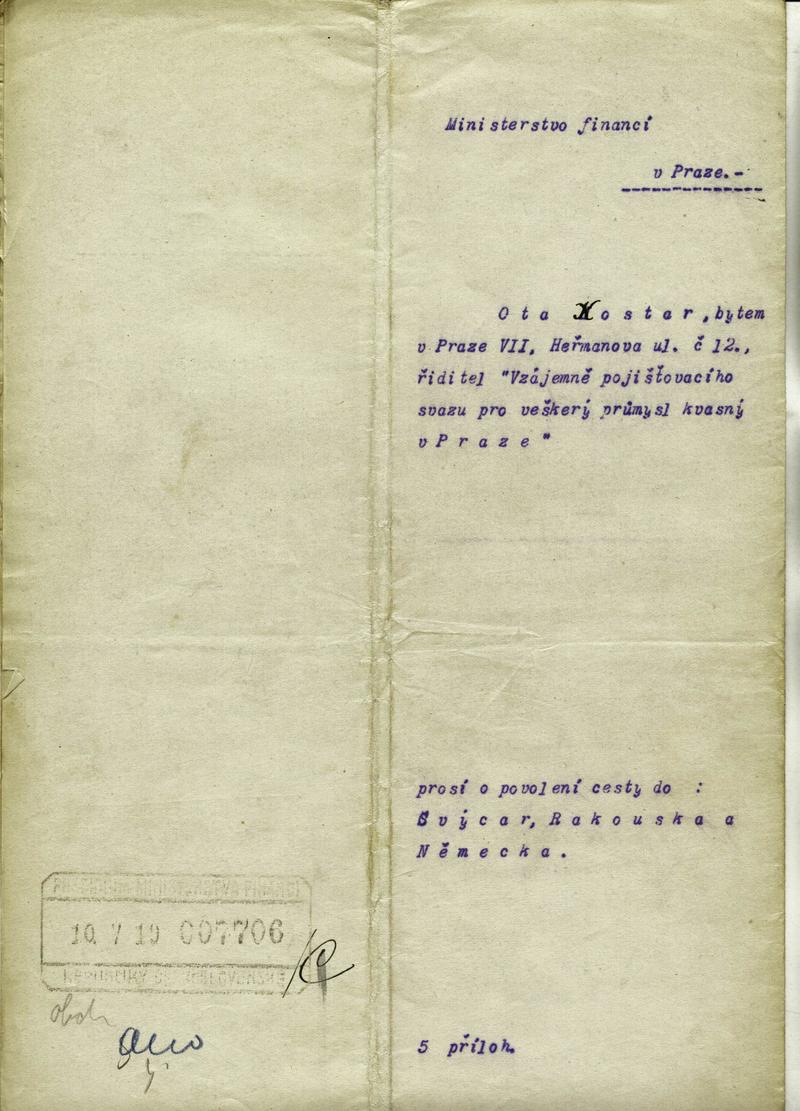 Ministerstvo financí
v Praze.-
Ota Kostar, bytem
v Praze VII, Heřmanova ul. č 12.,
řiditel "Vzájemně pojišťovacího
svazu pro veškerý průmysl kvasný
v Praze"
prosí o povolení cesty do :
Švýcar, Rakouska a
Německa.
5 příloh.
MINISTERSTVA FINANCÍ
10 7 19 007706
REPUBLIKY
ano